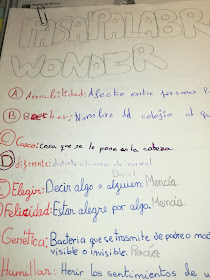 PASAPALABR
WONDER
A Amabilidad: Afecto entre personas
B Beecher: Nombre del colegio al qu
C Casco: cosa que se le pone en la cabeza
D diferente: distinto a lo normal
Daniel
E Elegir: Decir algo o alguien. Mencía.
F Felicidad: Estar alegre por algo. Mencía.
Genética: Bacteria que se trasmite de padre o mad
visible o invisible. Rocío
Humillar: Herir los sentimientos de